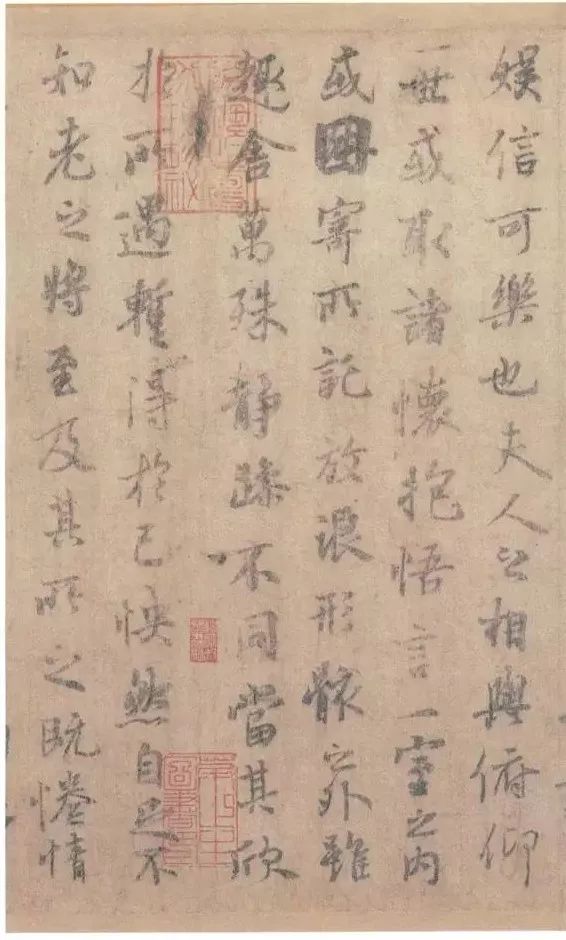 娱信可樂也夫人之相與俯仰
一世或取諸懷抱悟言一室之內
或因寄所託放浪形骸之外雖
趣舍萬殊静躁不同當其欣
於所遇暫得於己怏然自足不
知老之將至及其所之既惓情